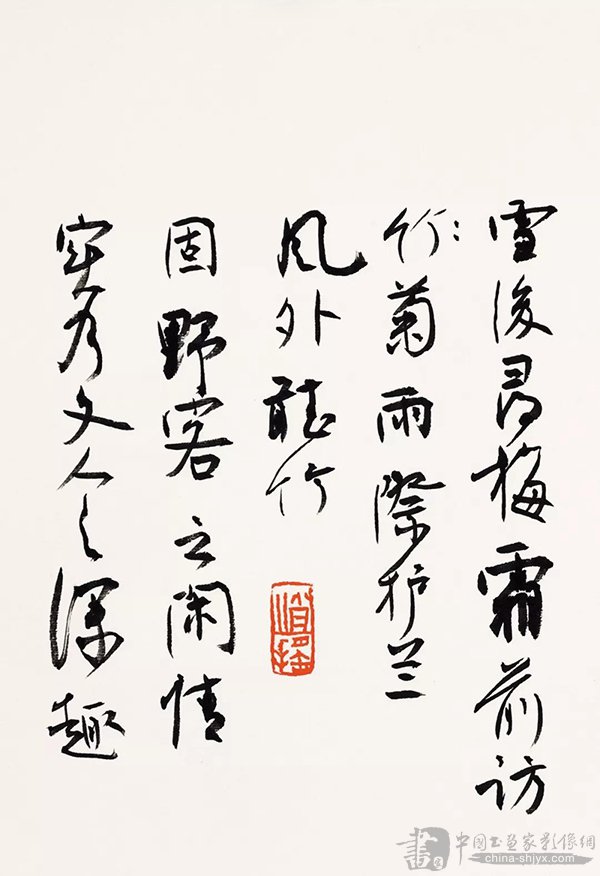 雪後尋梅霜前访
竹菊雨際护兰
風外聽竹
固野客之閑情
寔为文人之深趣
中國书画家影像網
china-shjyx.com